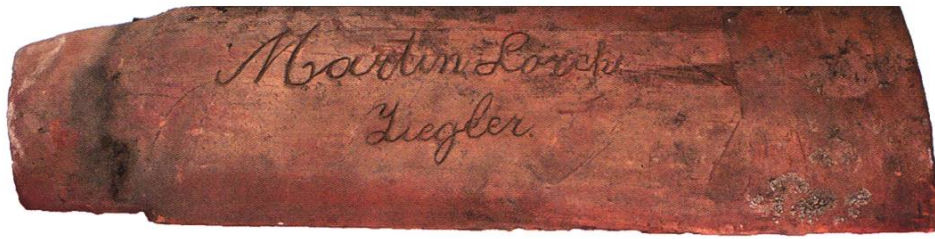 Martin Lorch
Ziegler.